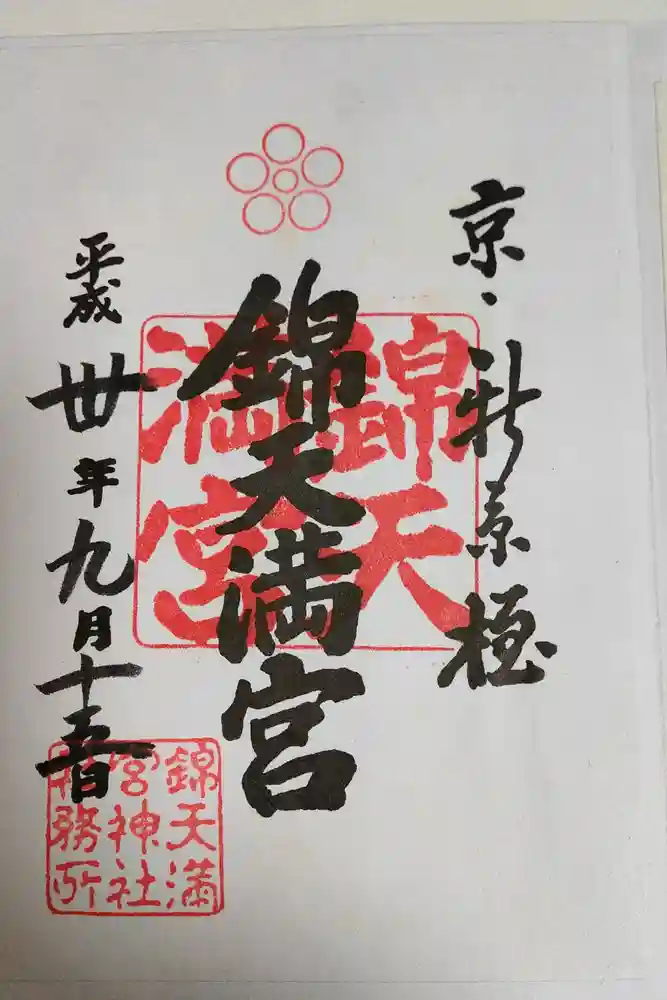 京・新京極
錦天満宮
錦天
満宮
平成丗年九月十五日
錦天満
宮神社
社務所